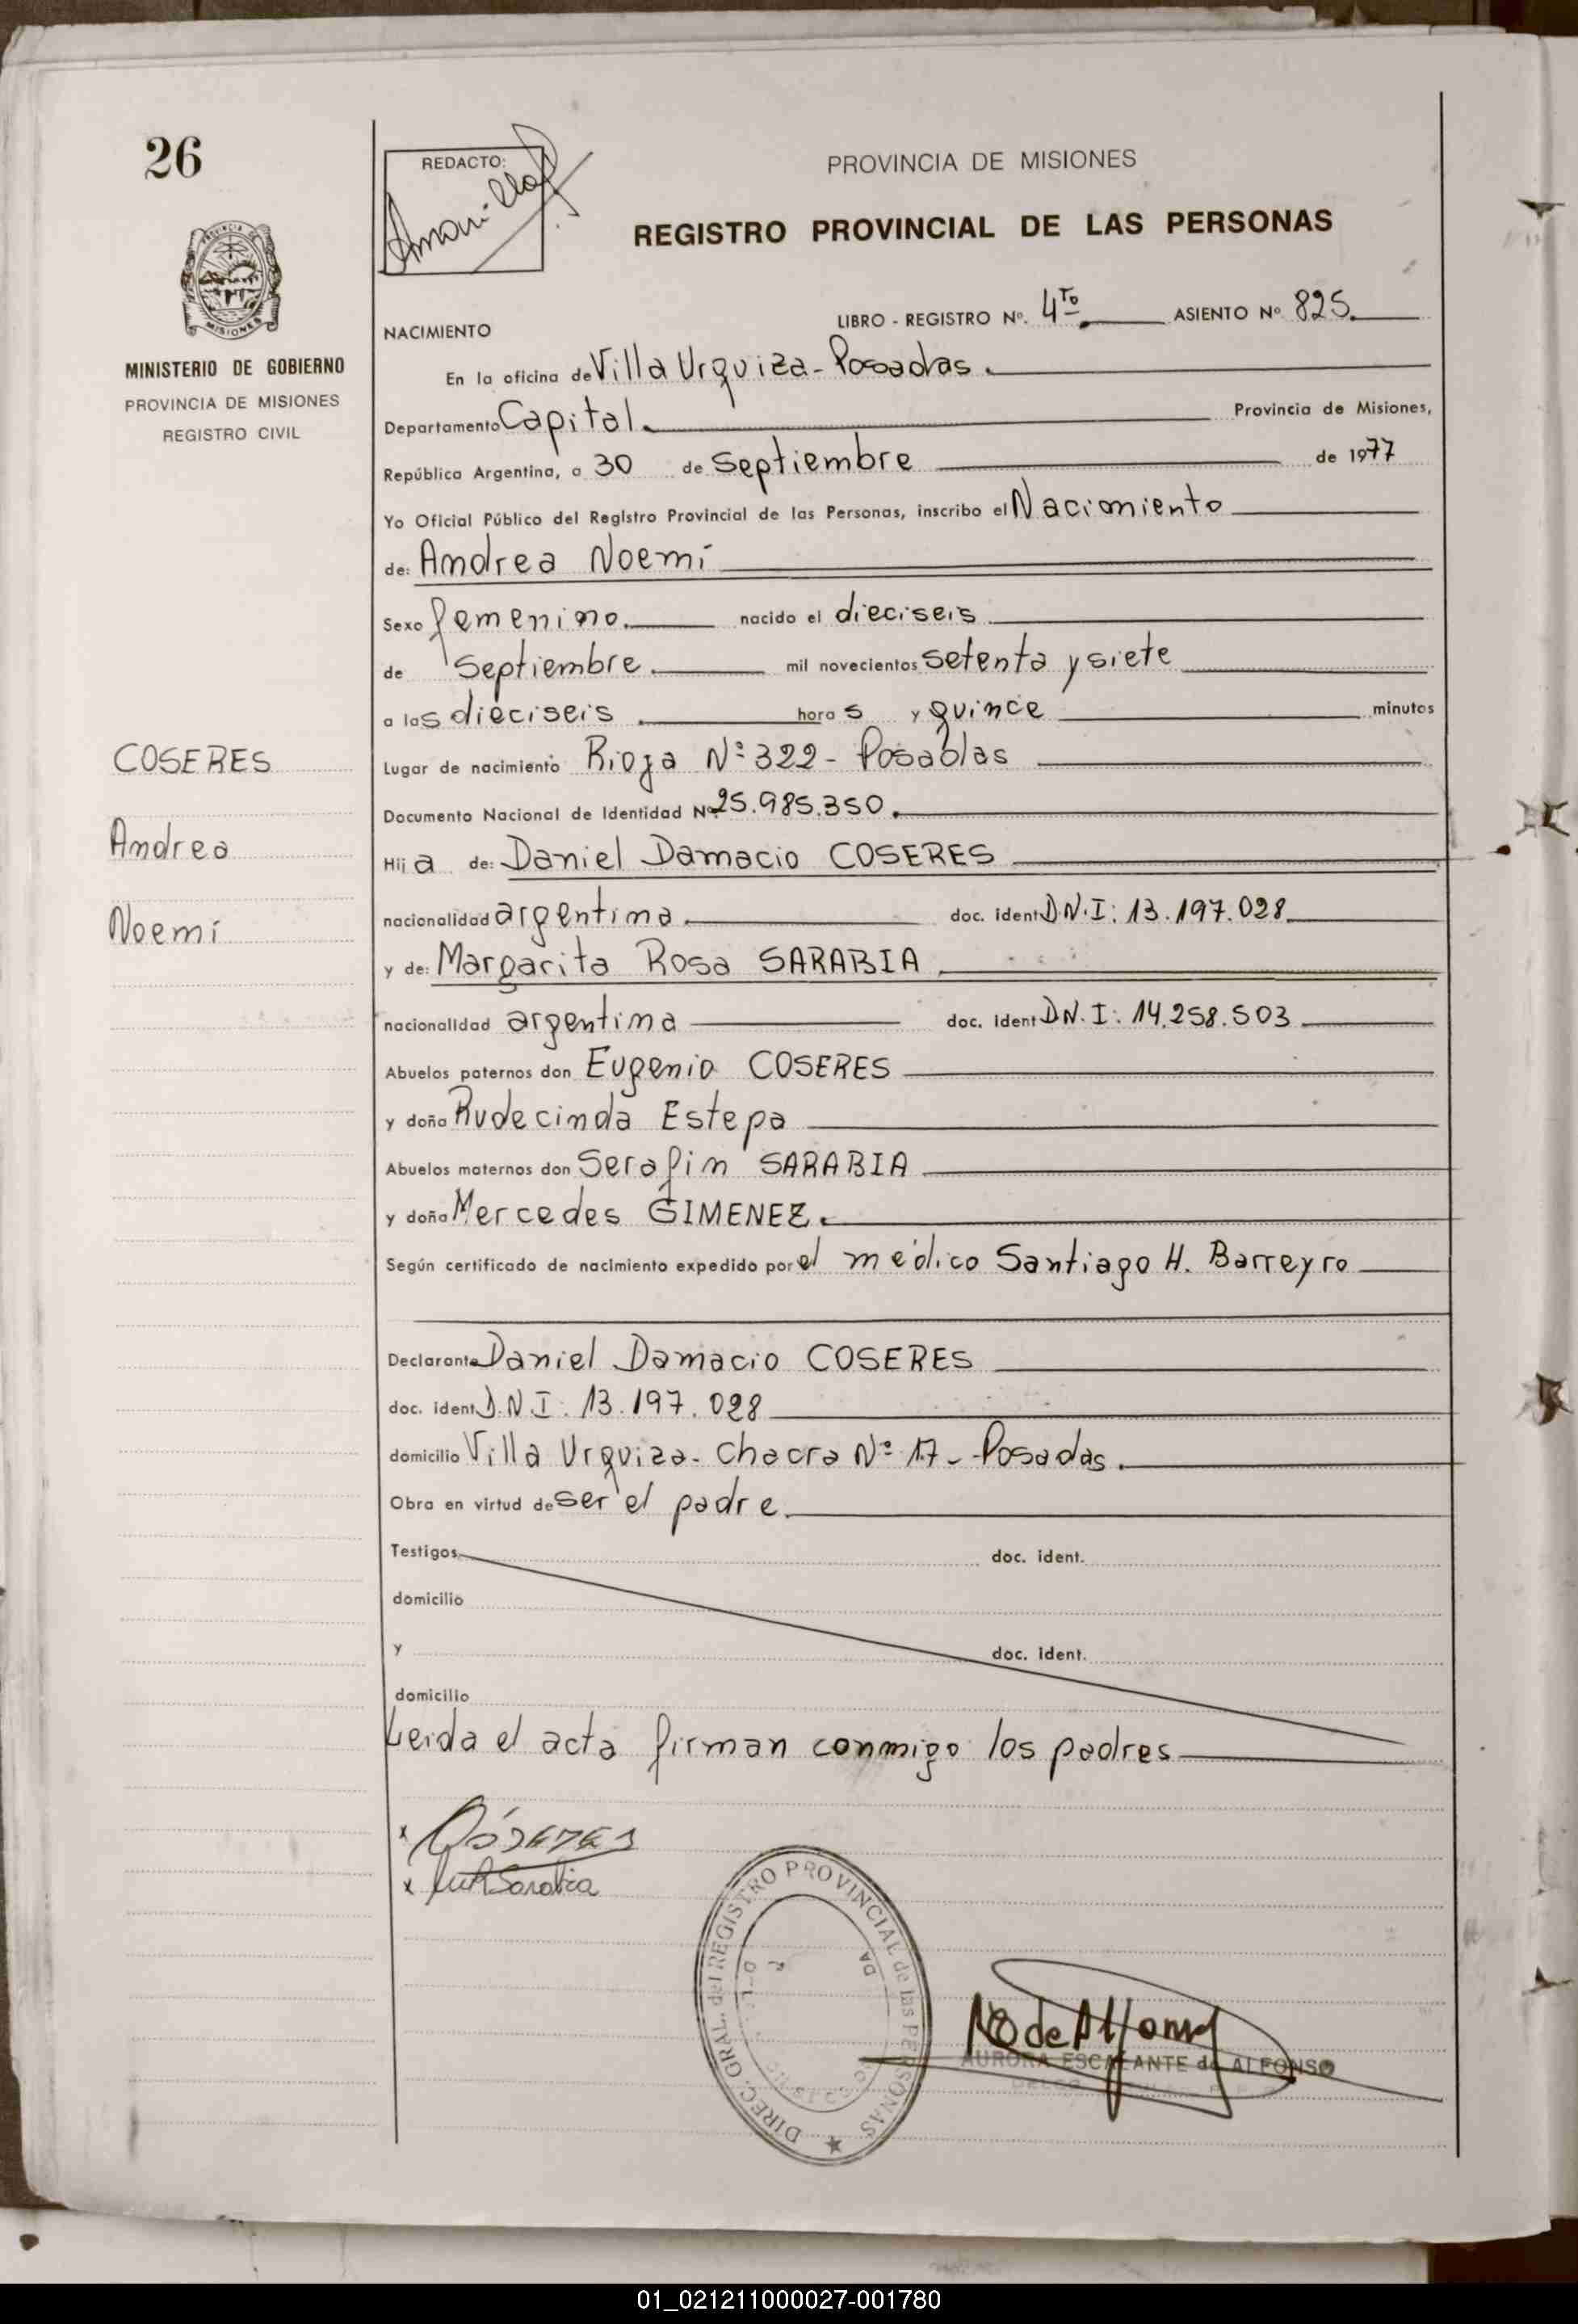 26
REDACTO:
PROVINCIA DE MISIONES
REGISTRO PROVINCIAL DE LAS PERSONAS
MISIONES
MINISTERIO DE GOBIERNO
PROVINCIA DE MISIONES
REGISTRO CIVIL
NACIMIENTO
LIBRO - REGISTRO Nº. 4to ASIENTO Nº 825
En la oficina de Villa Urquiza - Posadas.
Departamento Capital. Provincia de Misiones,
República Argentina, a 30 de Septiembre de 1977
Yo Oficial Público del Registro Provincial de las Personas, inscribo el Nacimiento
de: Andrea Noemí
Sexo femenino. nacido el dieciseis
de Septiembre. mil novecientos setenta y siete
a las dieciseis. horas y quince minutos
Lugar de nacimiento Rioja Nº 322 - Posadas
Documento Nacional de Identidad Nº 25.985.350.
Hija de: Daniel Damacio COSERES
nacionalidad argentina. doc. ident D.N.I: 13.197.028
y de: Margarita Rosa SARABIA
nacionalidad argentina doc. ident D.N.I: 14.258.503
Abuelos paternos don Eugenio COSERES
y doña Rudecinda Estepa
Abuelos maternos don Serafin SARABIA
y doña Mercedes GIMENEZ.
Según certificado de nacimiento expedido por el médico Santiago H. Barreyro
Declarante Daniel Damacio COSERES
doc. ident D.N.I. 13.197.028
domicilio Villa Urquiza - Chacra Nº 17 - Posadas.
Obra en virtud de ser el padre.
Testigos doc. ident.
domicilio
y doc. ident.
domicilio
Leida el acta firman conmigo los padres
COSERES
Andrea
Noemí
x
x Sarabia
DIREC. GRAL. del REGISTRO PROVINCIAL de las PERSONAS
de Alfonso
AURORA ESCALANTE de ALFONSO
01_021211000027-001780